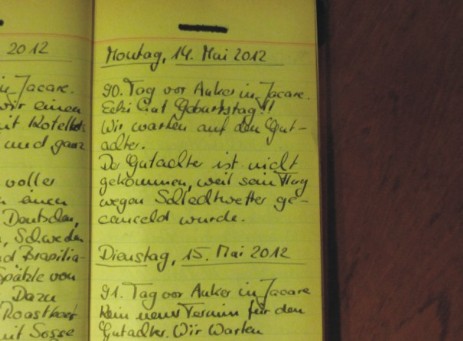 2012
in Jacare.
wir einen
mit Kotelett
und ganz
voller
einen
Deutschen,
, Schweden
nd Brasilia-
Spätzle von
Dazu
Roastbeef
mit Sosse
Montag, 14. Mai 2012
90. Tag vor Anker in Jacare.
hat Geburtstag!!
Wir warten auf den Gut-
achter.
Der Gutachter ist nicht
gekommen, weil sein Flug
wegen Schlechtwetter ge-
canceld wurde.
Dienstag, 15. Mai 2012
91. Tag vor Anker in Jacare
Kein neuer Termin für den
Gutachter. Wir warten